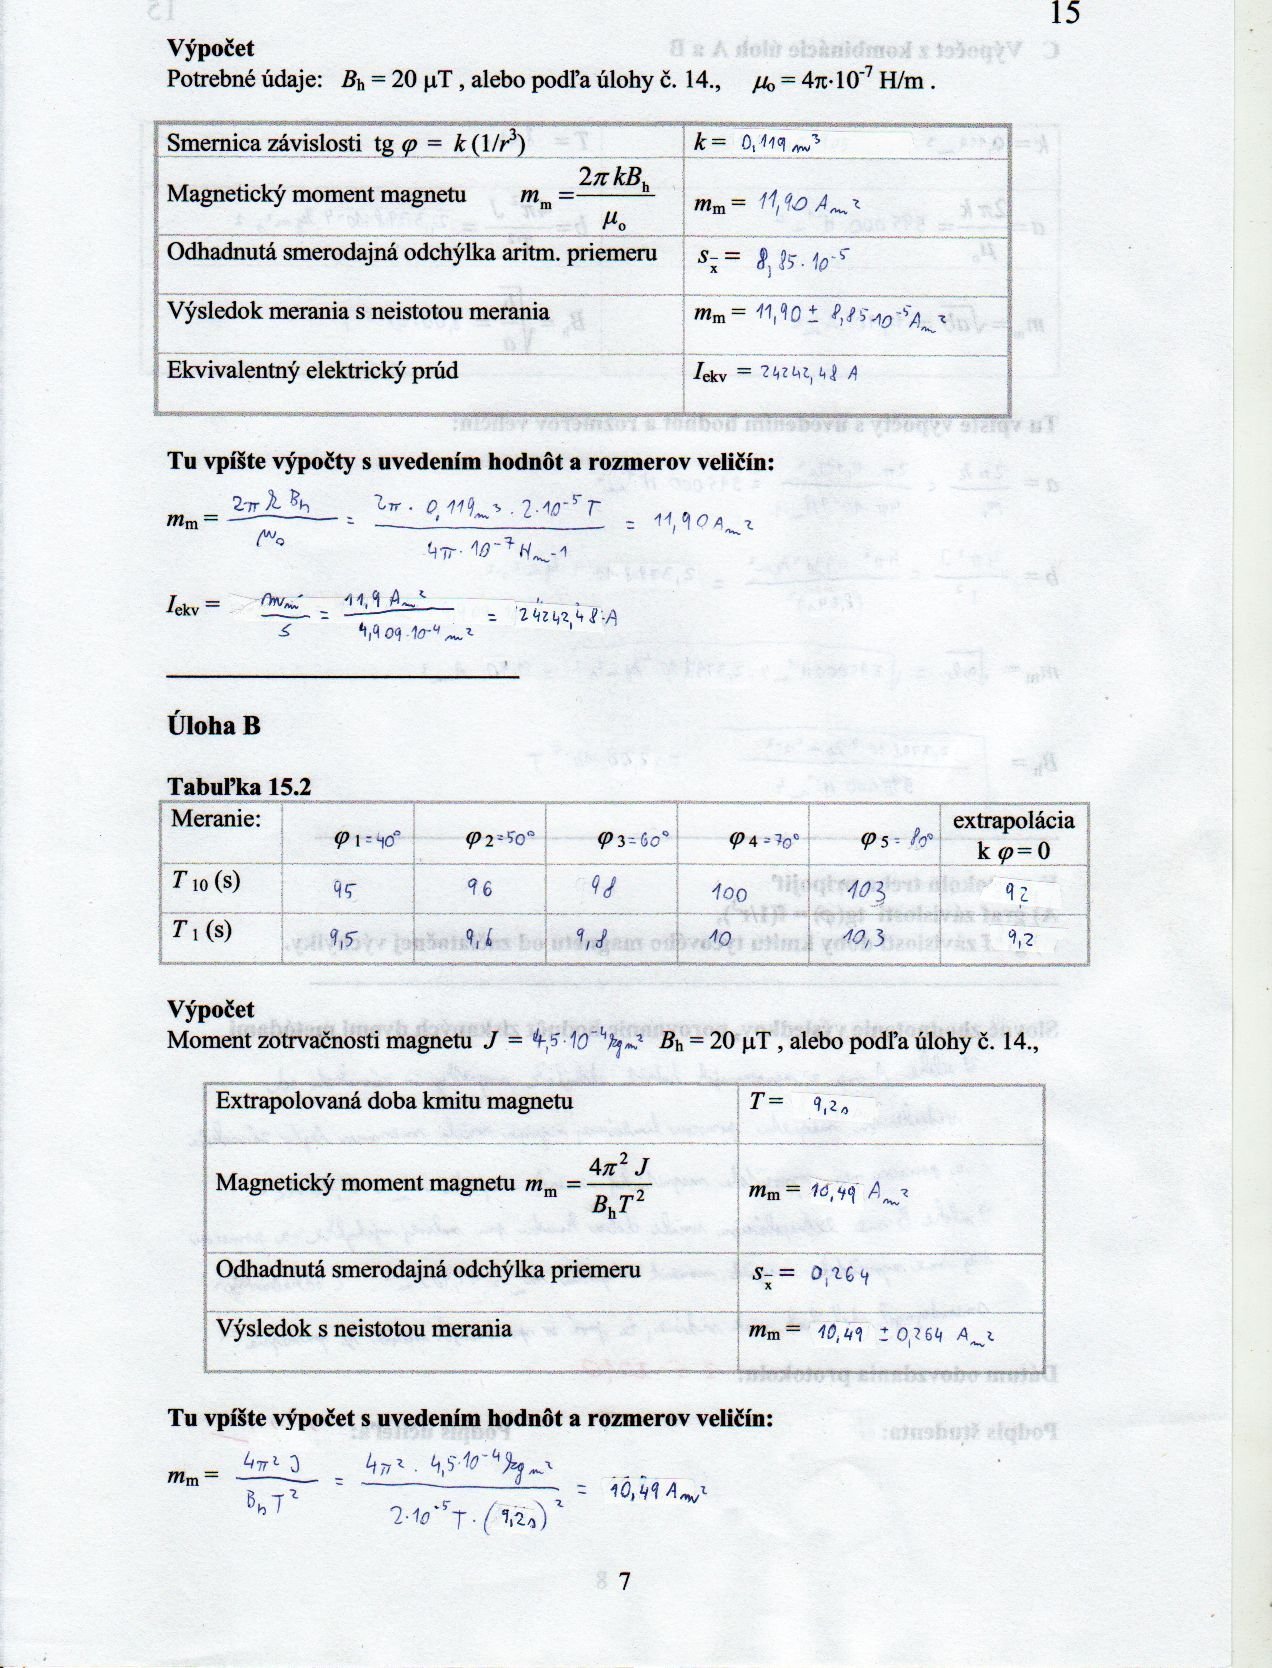 15
Výpočet
Potrebné údaje: Bh = 20 μT , alebo podľa úlohy č. 14., μo = 4π·10⁻⁷ H/m .
Smernica závislosti tg φ = k (1/r³) k = 0,119 m³
Magnetický moment magnetu mm = 2π kBh / μo mm = 11,90 Am²
Odhadnutá smerodajná odchýlka aritm. priemeru sx̄ = 8,85·10⁻⁵
Výsledok merania s neistotou merania mm = 11,90 ± 8,85·10⁻⁵ Am²
Ekvivalentný elektrický prúd Iekv = 24242,48 A
Tu vpíšte výpočty s uvedením hodnôt a rozmerov veličín:
mm = 2π k Bh / μo = 2π · 0,119m³ · 2·10⁻⁵ T / 4π · 10⁻⁷ Hm⁻¹ = 11,90 Am²
Iekv = mm / S = 11,9 Am² / 4,909·10⁻⁴ m² = 24242,48 A
Úloha B
Tabuľka 15.2
Meranie: φ 1 = 40° φ 2 = 50° φ 3 = 60° φ 4 = 70° φ 5 = 80° extrapolácia k φ = 0
T 10 (s) 95 96 98 100 103 92
T 1 (s) 9,5 9,6 9,8 10 10,3 9,2
Výpočet
Moment zotrvačnosti magnetu J = 4,5·10⁻⁴ kgm² Bh = 20 μT , alebo podľa úlohy č. 14.,
Extrapolovaná doba kmitu magnetu T = 9,2s
Magnetický moment magnetu mm = 4π² J / BhT² mm = 10,49 Am²
Odhadnutá smerodajná odchýlka priemeru sx̄ = 0,264
Výsledok s neistotou merania mm = 10,49 ± 0,264 Am²
Tu vpíšte výpočet s uvedením hodnôt a rozmerov veličín:
mm = 4π² J / Bh T² = 4π² · 4,5·10⁻⁴ kgm² / 2·10⁻⁵ T · (9,2s)² = 10,49 Am²
7